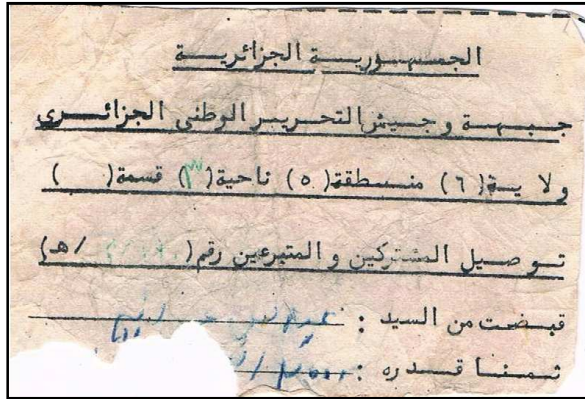 الجمهورية الجزائرية
جبهة وجيش التحرير الوطني الجزائري
ولاية (٦) منطقة (٥) ناحية (٣) قسمة ( )
توصيل المشتركين و المتبرعين رقم ( /ه)
قبضت من السيد :
ثمنا قدره :